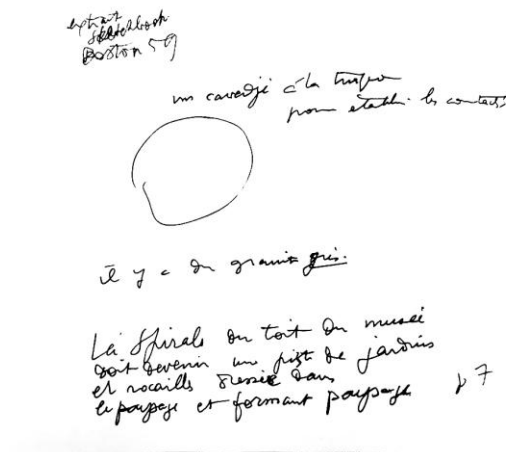 extrait
sketchbook
Boston 59
un cavedji à la turque
pour etablir les contacts
il y a du granit gris.
La Spirale du toit du musée
doit devenir un pist de jardins
et rocailles dans
le paysage et formant paysage p 7